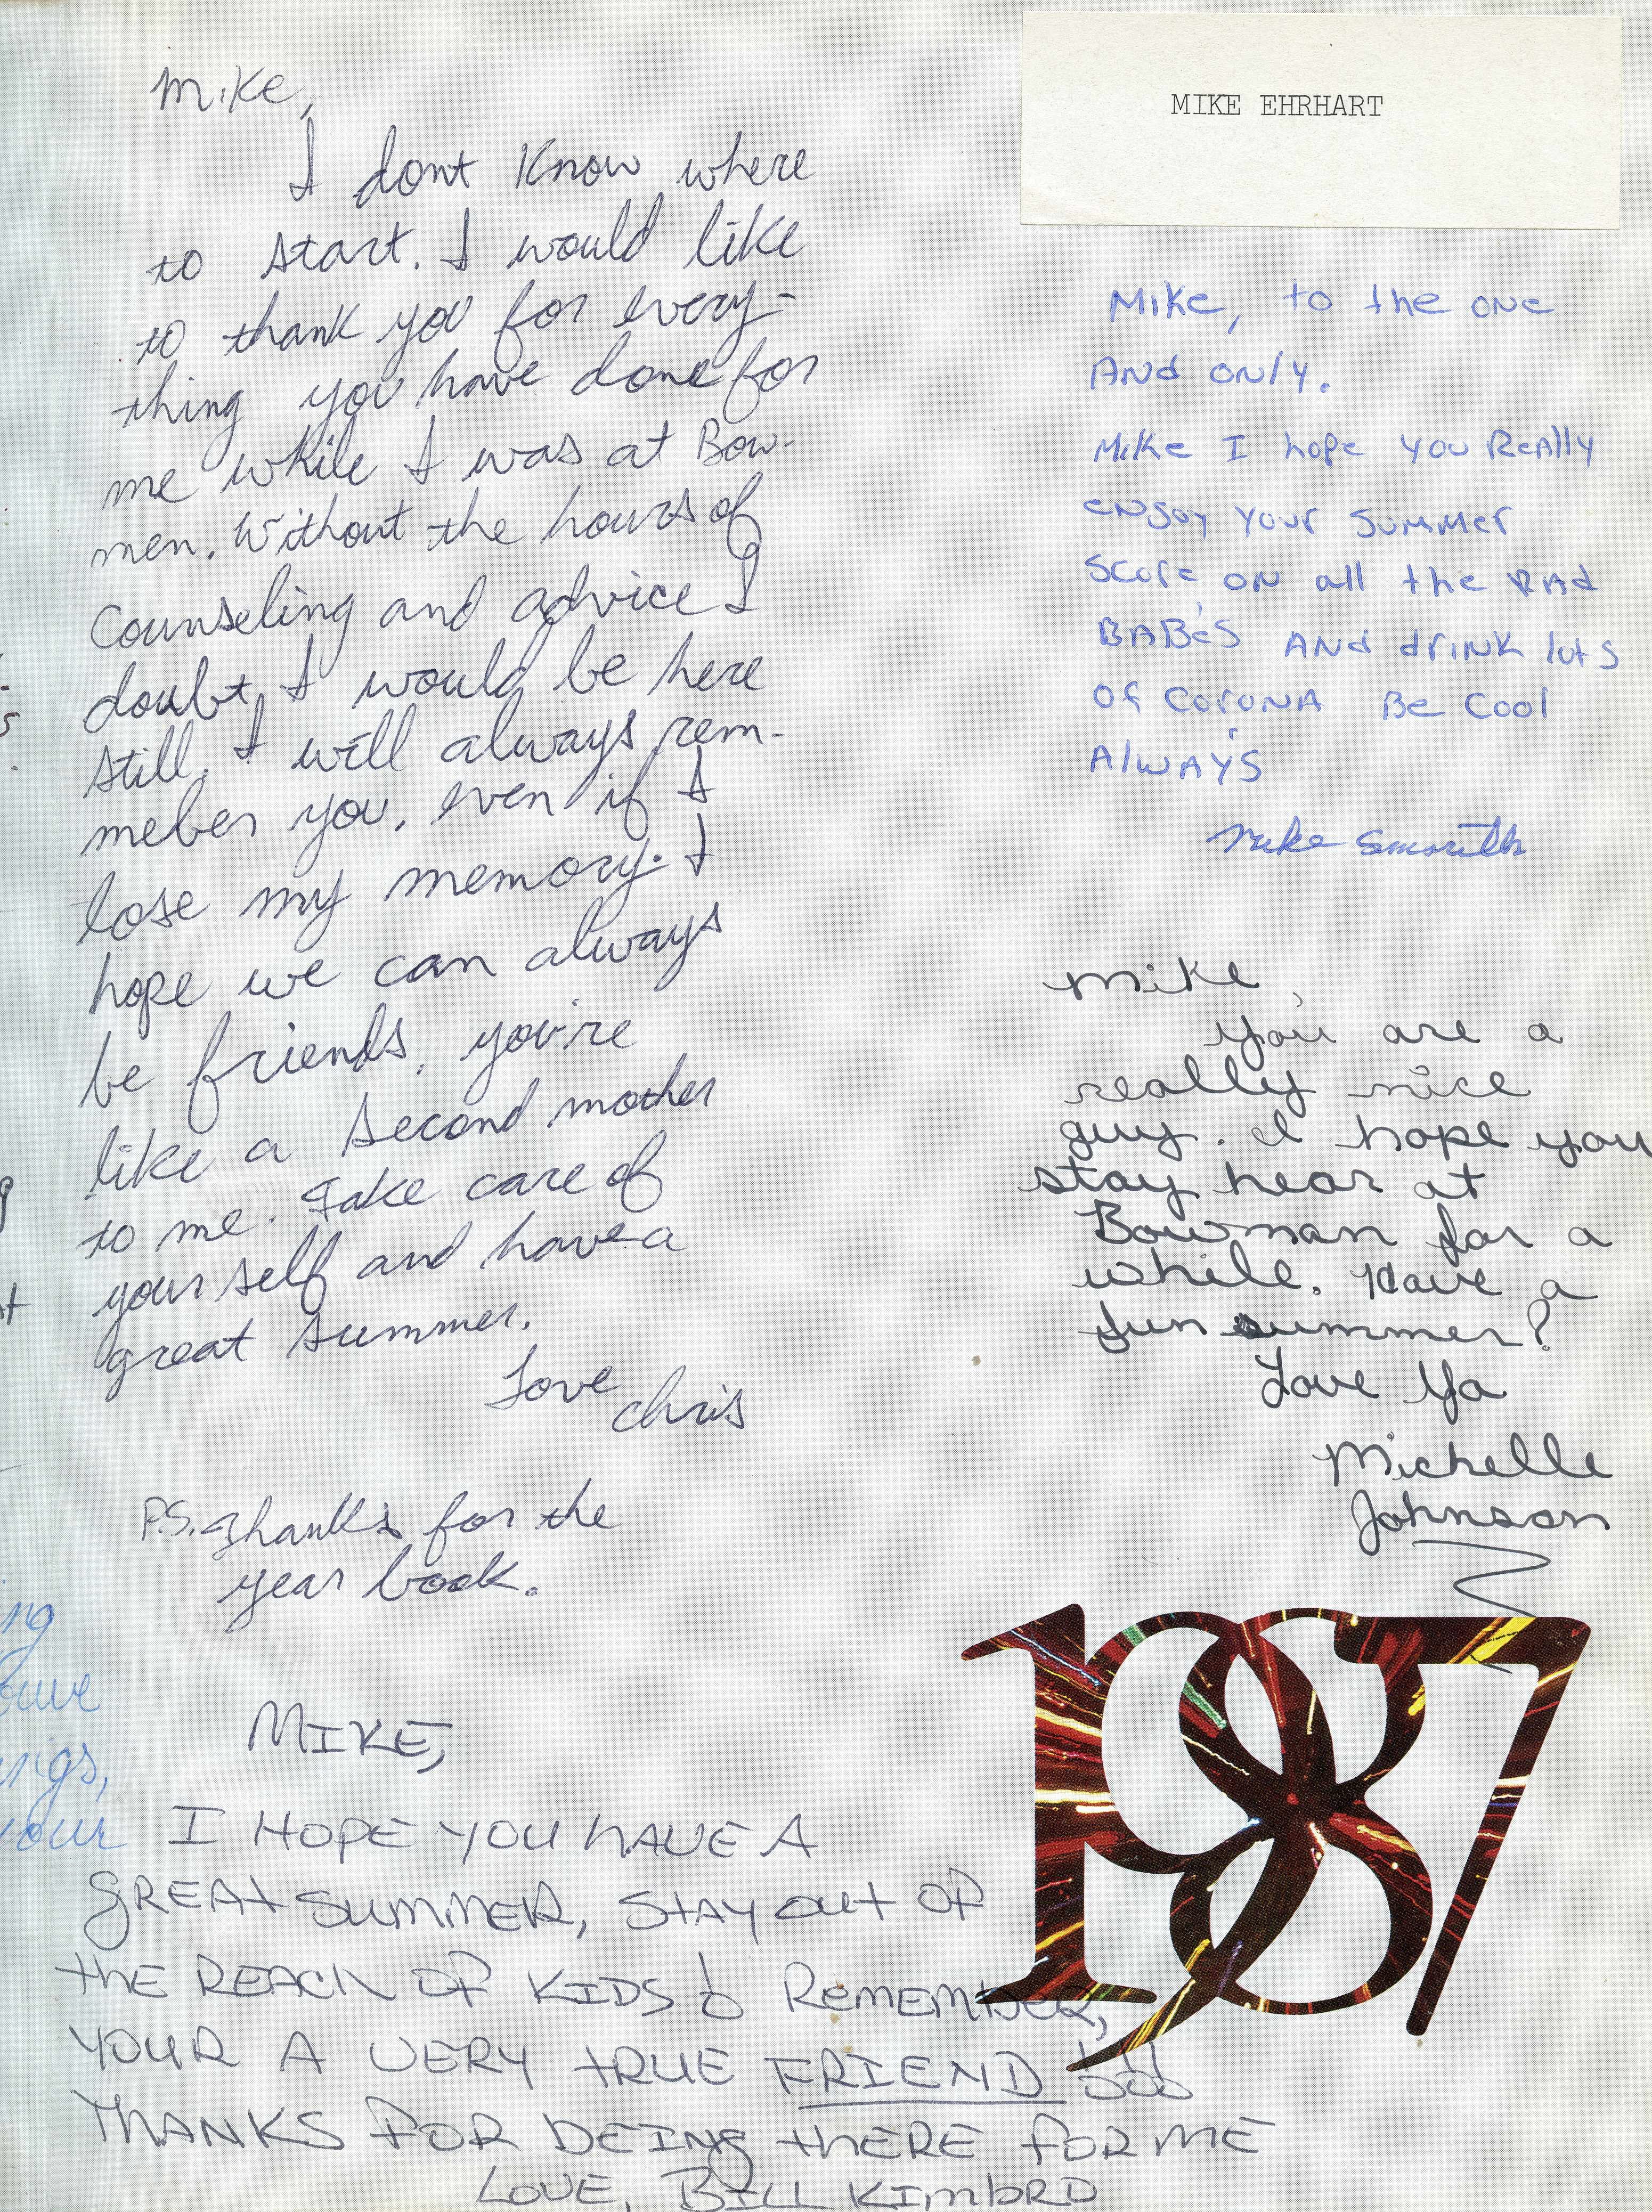 Mike,
I dont Know where
to start. I would like
to thank you for every-
thing you have done for
me while I was at Bow-
men. Without the hours of
Counseling and advice I
doubt I would be here
still. I will always rem-
meber you, even if I
lose my memory. I
hope we can always
be friends, you're
like a second mother
to me. Take care of
your self and have a
great summer.
Love
Chris
P.S. Thanks for the
year book.
MIKE,
I HOPE YOU HAVE A
GREAT SUMMER, STAY OUT OF
THE REACH OF KIDS! REMEMBER,
YOUR A VERY TRUE FRIEND!!!
THANKS FOR BEING THERE FOR ME
LOVE, BILL KIMBRO
MIKE EHRHART
Mike, to the one
And only.
Mike I hope you Really
enjoy your summer
score on all the RAd
BABe's ANd driNK lots
Of CoroNA Be Cool
AlwAYS
Mike Smith
Mike,
you are a
really nice
guy. I hope you
stay hear at
Bowman for a
while. Have a
fun summer?
Love Ya
Michelle
Johnson
1987
ng
ings,
your